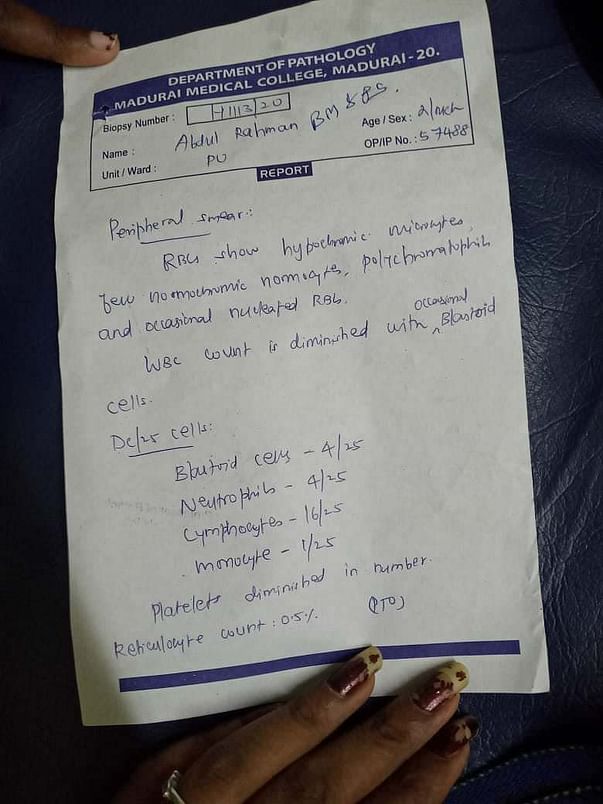 DEPARTMENT OF PATHOLOGY
MADURAI MEDICAL COLLEGE, MADURAI - 20.
Biopsy Number : H113/20
Name : Abdul Rahman BM & PS. Age / Sex : 2/Mch
Unit / Ward : PU OP/IP No. : 57488
REPORT
Peripheral smear:
RBCs show hypochromic microcytes,
few normochromic normocytes, polychromatophils
and occasional nucleated RBCs.
WBC count is diminished with occasional Blastoid
cells.
DC/25 cells:
Blastoid cells - 4/25
Neutrophils - 4/25
Lymphocytes - 16/25
Monocyte - 1/25
Platelets diminished in number.
Reticulocyte count : 0.5% (PTO)